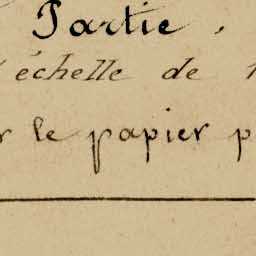 Partie.
échelle de 1
r le papier p